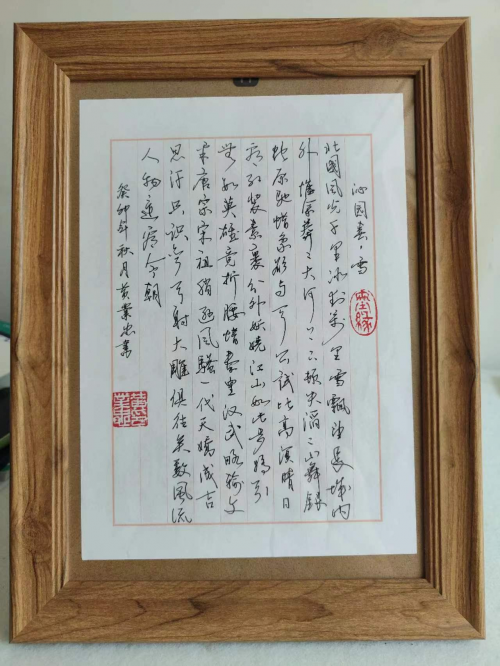 沁园春·雪
北國风光千里冰封萬里雪飘望長城内
外惟余莽々大河上下顿失滔々山舞銀
蛇原驰蜡象欲与天公试比高须晴日
看红装素裹分外妖娆江山如此多娇引
無数英雄竞折腰惜秦皇汉武略输文
采唐宗宋祖稍逊风騷一代天嬌成吉
思汗只识弯弓射大雕俱往矣数风流
人物还看今朝
癸卯年秋月黄業忠書
墨缘